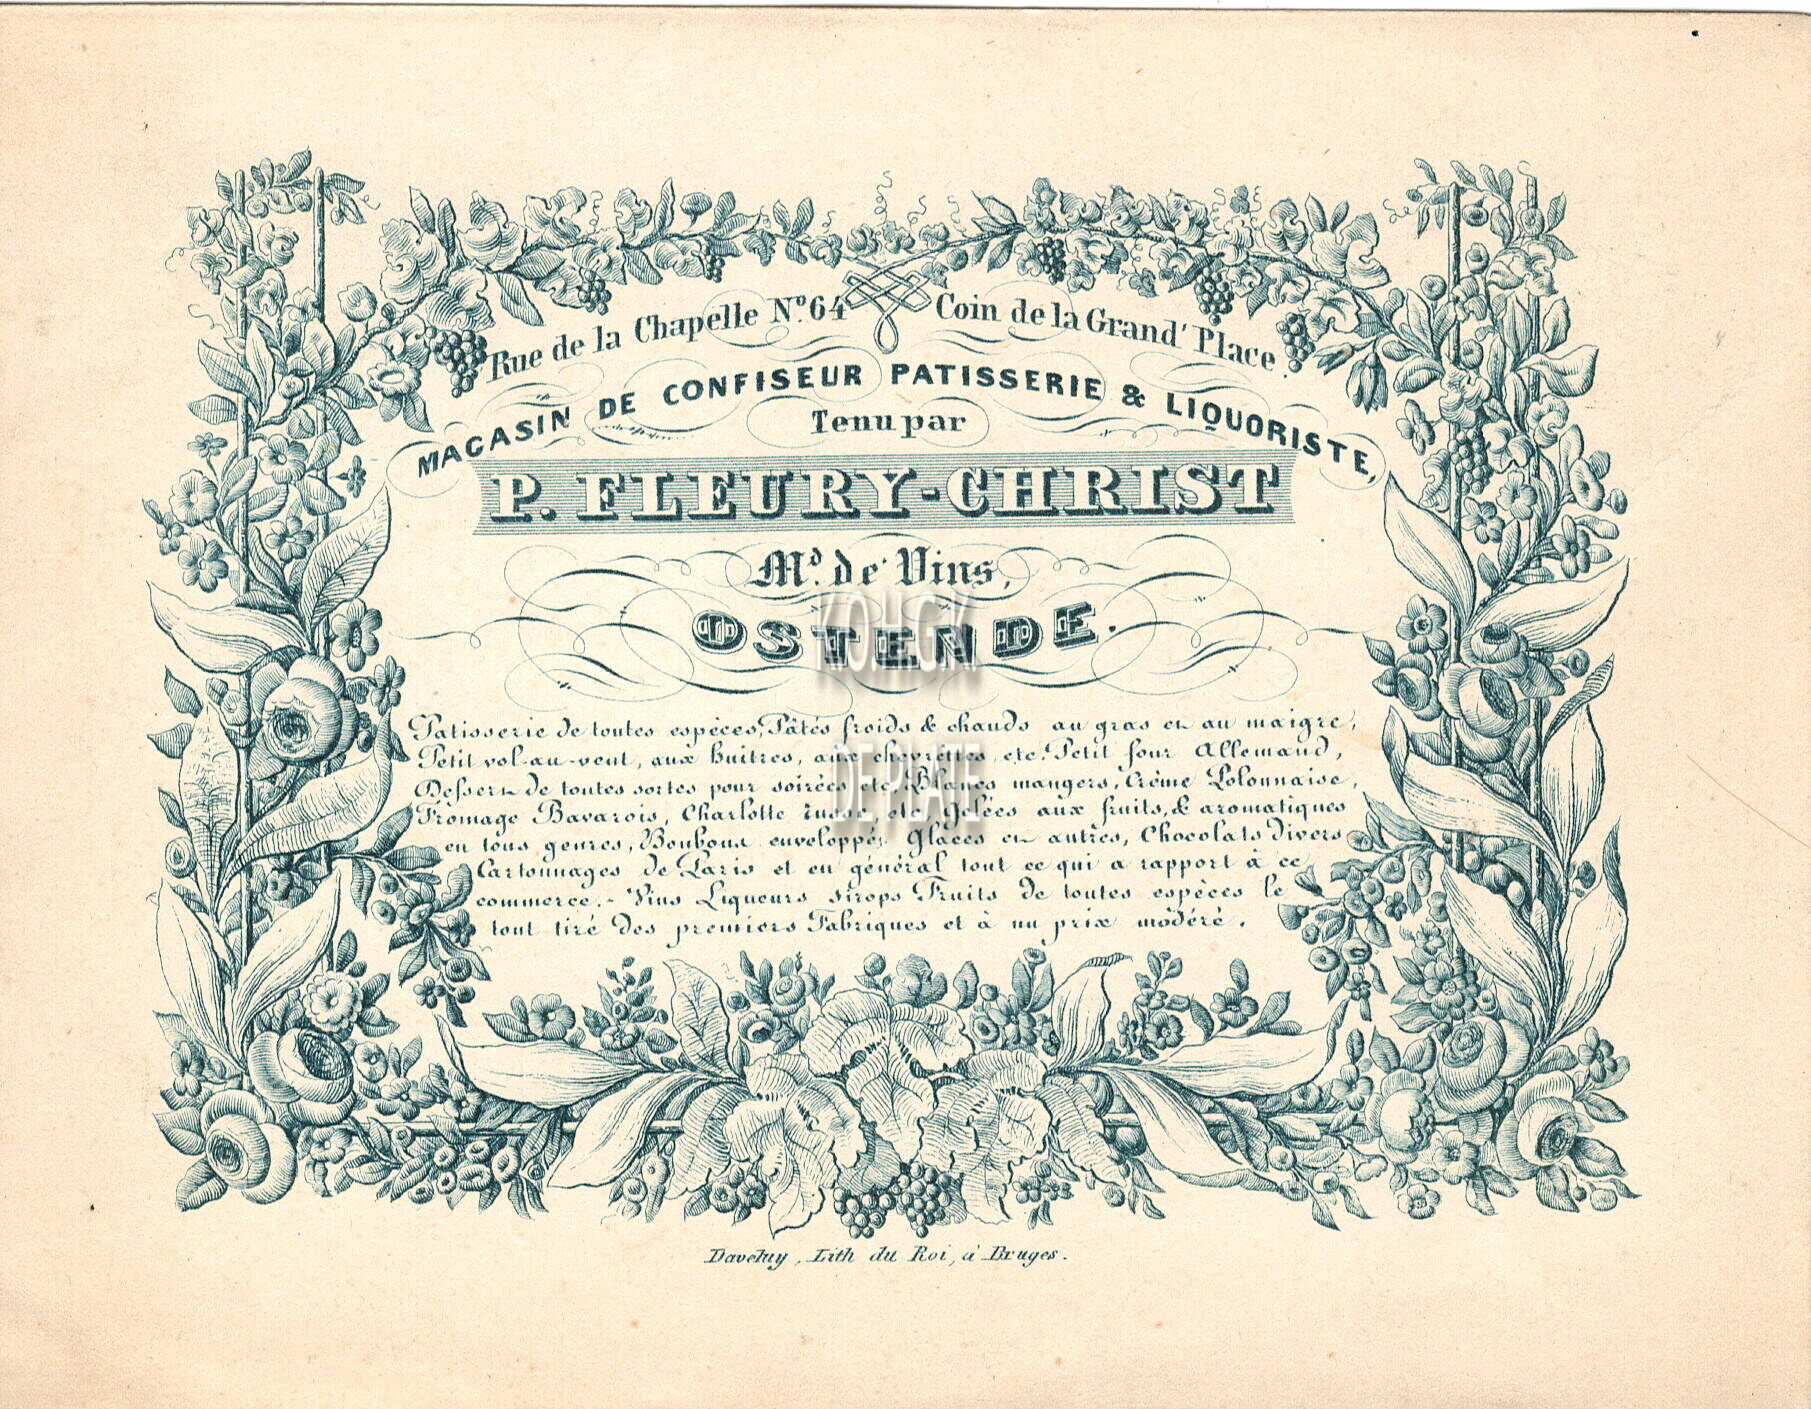 Rue de la Chapelle Nº. 64 Coin de la Grand' Place.
MAGASIN DE CONFISEUR PATISSERIE & LIQUORISTE,
Tenu par
P. FLEURY-CHRIST
Md. de Vins,
OSTENDE.
Patisserie de toutes espèces, Pâtés froids & chauds au gras en au maigre,
Petit vol-au-vent, aux huitres, aux chevrettes, etc. Petit four Allemand,
Dessert de toutes sortes pour soirées etc, Blancs mangers, Crême Polonnaise,
Fromage Bavarois, Charlotte russe, etc, Gelées aux fruits, & aromatiques
en tous genres, Bonbons enveloppés Glaces en autres, Chocolats divers
Cartonnages de Paris et en général tout ce qui a rapport à ce
commerce. - Vins Liqueurs Sirops Fruits de toutes espèces le
tout tiré des premiers Fabriques et à un prix modéré.
Daveluy, Lith du Roi, à Bruges.
KO.H.G.K.
DE PLATE